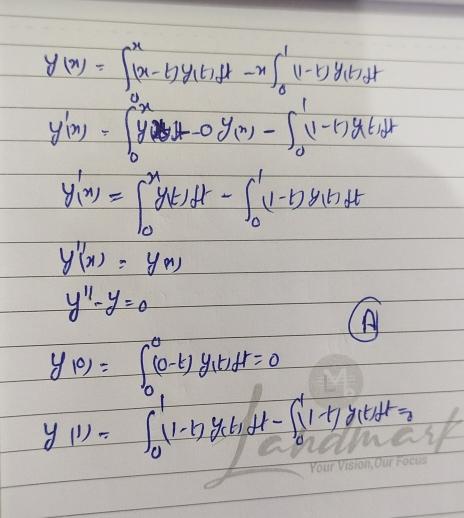 y(x) = ∫₀ˣ (x-t)y(t)dt - x∫₀¹ (1-t)y(t)dt
y'(x) = ∫₀ˣ y(t)dt - 0 y(x) - ∫₀¹ (1-t)y(t)dt
y'(x) = ∫₀ˣ y(t)dt - ∫₀¹ (1-t)y(t)dt
y''(x) = y(x)
y'' - y = 0
(A)
y(0) = ∫₀⁰ (0-t)y(t)dt = 0
y(1) = ∫₀¹ (1-t)y(t)dt - ∫₀¹ (1-t)y(t)dt =
Landmark
Your Vision, Our Focus